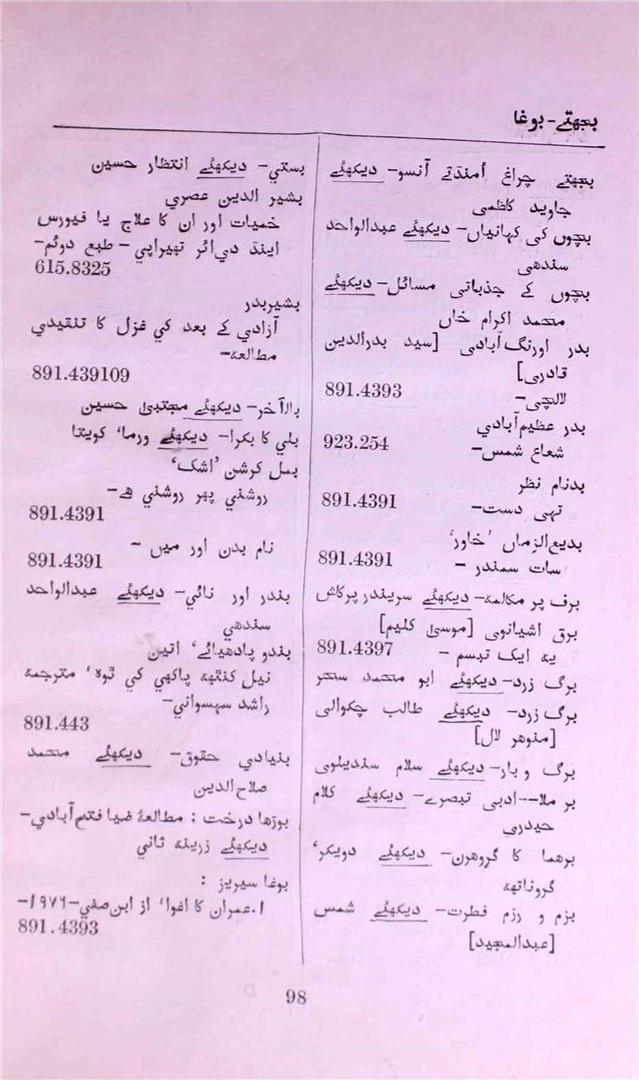 بجھتے-بوغا
بجھتے چراغ اُمنڈتے آنسو- دیکھئے
جاوید کاظمی
بچوں کی کہانیاں- دیکھئے عبدالواحد
سندھی
بچوں کے جذباتی مسائل- دیکھئے
محمد اکرام خاں
بدر اورنگ‌آبادی [سید بدرالدین
قادری]
لالچی- 891.4393
بدر عظیم‌آبادي
شعاع شمس- 923.254
بدنام نظر
تہی دست- 891.4391
بدیع‌الزماں ’خاور‘
سات سمندر - 891.4391
برف پر مکالمہ- دیکھئے سریندر پرکاش
برق اشیانوی [موسیٰ کلیم]
یہ ایک تبسم - 891.4397
برگ زرد- دیکھئے ابو محمد سحر
برگ زرد- دیکھئے طالب چکوالی
[منوهر لال]
برگ و بار- دیکھئے سلام سندیلوی
بر ملا--ادبی تبصرے- دیکھئے کلام
حیدری
برهما کا گروهرن- دیکھئے دویکر،
گروناتھ
بزم و رزم فطرت- دیکھئے شمس
[عبدالمجید]
بستي- دیکھئے انتظار حسین
بشیر الدین عصري
حمیات اور ان کا علاج یا فیورس
اینڈ دی‌ائر تھیراپی - طبع دوئم-
615.8325
بشیربدر
آزادي کے بعد کي غزل کا تنقیدي
مطالعہ-
891.439109
بالاآخر- دیکھئے مجتبیٰ حسین
بلي کا بکرا- دیکھئے ورما، کویتا
بمل کرشن ’اشک‘
روشني پھر روشني ھے-
891.4391
نام بدن اور میں -
891.4391
بندر اور نائي- دیکھئے عبدالواحد
سندھي
بندو پادھیائے، اتین
نیل کنٹھ پاکھي کي ٹوہ، مترجمہ
راشد سہسواني-
891.443
بنیادي حقوق- دیکھئے محمد
صلاح‌الدین
بوڑھا درخت : مطالعۂ ضیا فتح‌آبادي-
دیکھئے زرینہ ثاني
بوغا سیریز :
۱.عمران کا اغوا، از ابن صفي-۱۹۷۶-
891.4393
98